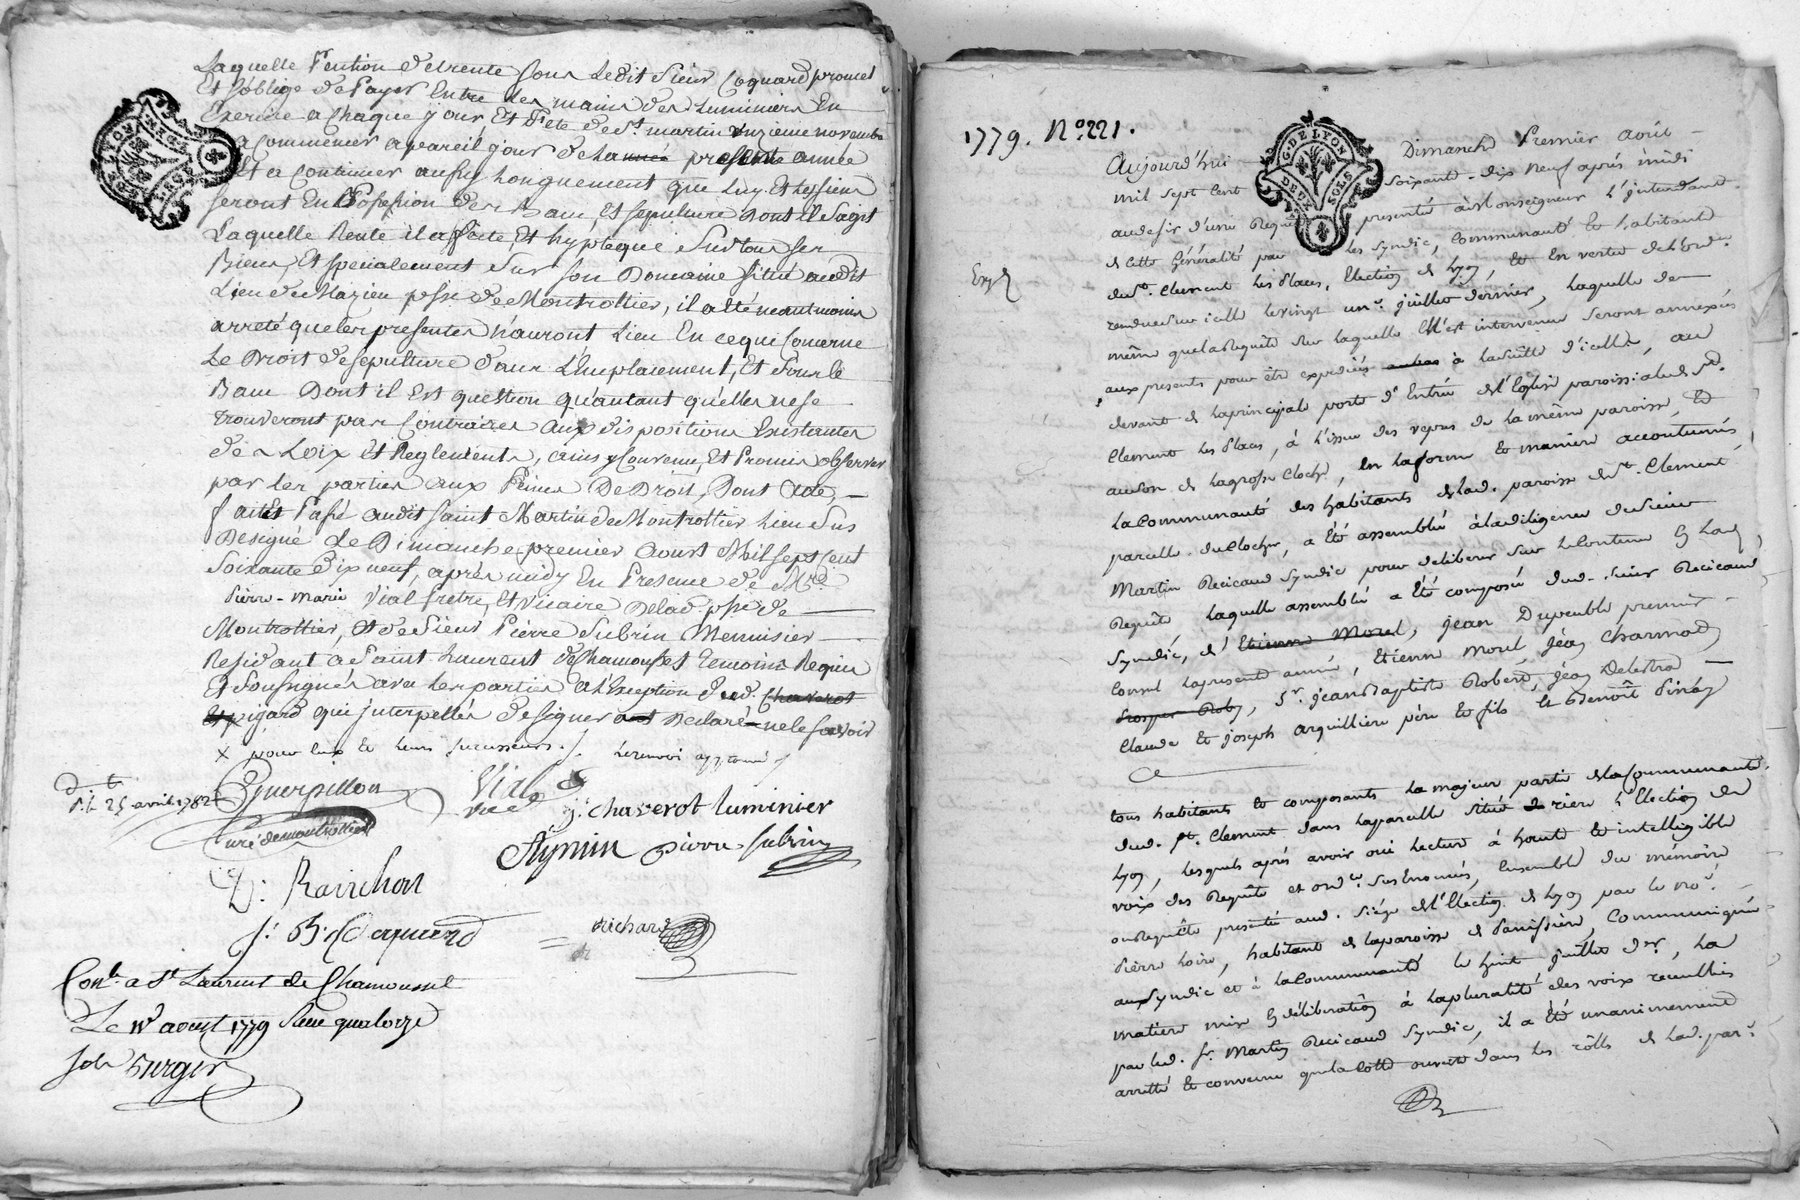 Laquelle Pention de trente sous ledit Sieur Coquard promet
Et s'oblige de Payer Entre les mains des Luminiers En
Exercice a Chaque jour Et fete de St. martin onzieme novembre
a Commencer a pareil jour de la presente année
Et a Continuer aussy Longuement que Luy Et Les siens
seront En Possession des Banc Et sepulture Dont il s'agit
Laquelle Rente il affecte Et hypteque sur tous ses
Biens, Et specialement sur son Domaine situé audit
Lieu de Mazieu psse de Montrottier, il a été neantmoins
arreté que les presentes n'auront Lieu En ce qui Concerne
Le Droit de sepulture dans L'Emplacement, Et Pour le
Banc Dont il Est question qu'autant qu'elles ne se
trouveront pas Contraires aux dispositions Existantes
des Loix Et Reglements, ainsy Convenu, Et Promis observer
par les parties aux Peines De Droit, Dont Acte,
fait Et Passé audit saint Martin de Montrottier Lieu sus
Designé Le Dimanche premier Aoust Mil sept Cent
Soixante dix neuf, après midy En Presence de Mre.
Pierre-Marie Vial Pretre, Et Vicaire De lad. psse de
Montrottier, Et de Sieur Pierre Subrin Menuisier
Residant a Saint Laurent de Chamousset temoins Requis
Et Soussignés avec Les parties a l'Exception dud. Chaverot
Et pigard qui interpellés de signer ont Declaré ne le savoir
x pour lui et leurs successeurs ./. Le renvoi approuvé /
D. t.
d. L. 25 avril 1782
Guerpillon
Vial
vic
curé de montrottier
j. Chaverot luminier
Aymin pierre Subrin
Ravichon
J. B. Coquard
Richard
Conlé a St Laurent de Chamousset
Le aoust 1779 Reçu quatorze
sols Surgis
1779. No. 221.
G. DE LYON
DEUX SOLS
Aujourd'hui Dimanche Premier août
mil sept cent soixante-dix neuf après midi
au desir d'une Requête presenté à Monseigneur L'Intendant
de cette Généralité par les Syndic, Communauté et habitants
de St. Clement les Places, Election de Lyon, et en vertu de l'ordce.
Exp
rendue sur icelle le vingt un. juillet dernier, laquelle de
même que la Requête sur laquelle Elle est intervenue seront annexées
aux presents pour être expediées à la suitte d'icelle, au
devant de la principale porte d'Entrée de l'Eglise paroissiale de St.
Clement les Places, à l'issue des vepres de la même paroisse, et
au son de la grosse Cloche, en la forme et maniere accoutumés,
La Communauté des habitants de lad. paroisse de St. Clement
parcelle du Clocher, a été assemblée à la diligence du Sieur
Martin Recicaud Syndic pour deliberer sur le contenu en lad.
Requête laquelle assemblée a été composée dud. Sieur Recicaud
Syndic, d'Etienne Morel, Jean Dupeuble premier
Consul la presente année, Etienne Morel, Jean Charmod
Prosper Roby, Sr. Jean Baptiste Robert, Jean Delestra
Claude et Joseph Arquilliere père et fils et Benoît Pinay
tous habitants et composants la majeur partie de la Communauté
dud. St. Clement dans la parcelle située rière l'Election de
Lyon, lesquels après avoir oui lecture à haute et intelligible
voix des Requête et ordce. sus Enoncés, Ensemble du mémoire
ou Requête presenté aud. siége de l'Election de Lyon par le nô.
Pierre Loire, habitant de la paroisse de Panissiere, communiquée
aux Syndic et à la Communauté le huit juillet der., La
matiere mise en délibération à la pluralité des voix recueillies
par led. Sr. Martin Recicaud Syndic, il a été unanimement
arretté et convenu que la Cotte ouverte dans les rôlls de lad. par.